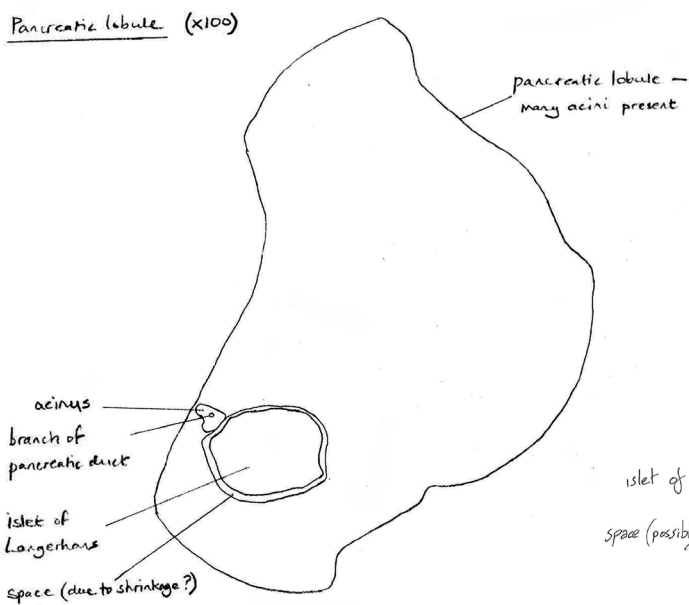 Pancreatic lobule (x100)
pancreatic lobule –
many acini present
acinus
branch of
pancreatic duct
islet of
Langerhans
space (due to shrinkage?)
islet of
space (possib